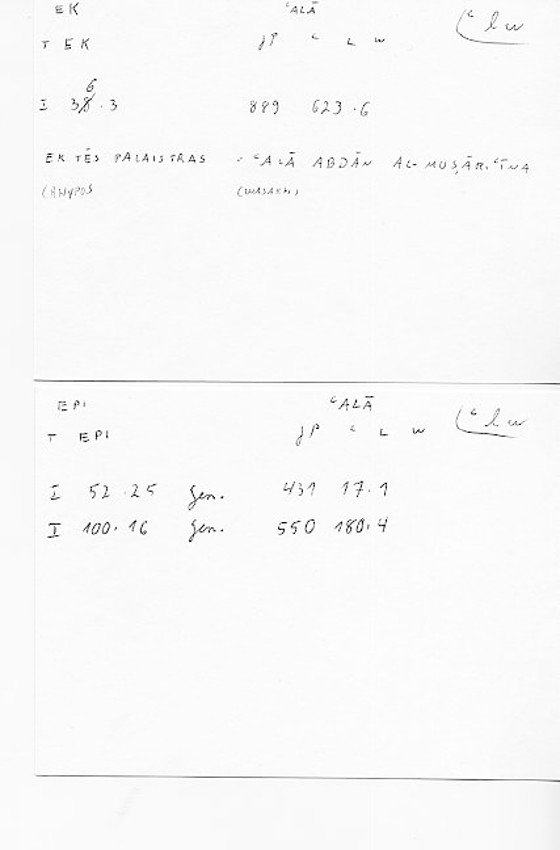 EK ʿALĀ
T EK JP ʿ L W ʿlw
6
I 38.3 889 623.6
EK TĒS PALAISTRAS ʿALĀ ABDĀN AL-MUṢĀRIʿĪNA
EPI ʿALĀ
T EPI JP ʿ L W ʿlw
I 52.25 Gen. 431 17.1
II 100.16 Gen. 550 180.4